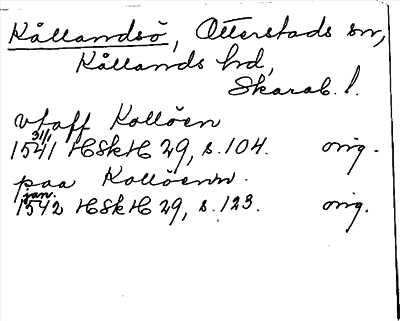 Kållandsö, Otterstads sn,
Kållands hd,
Skarab. l.
vtaff Kollöen
31/1
1541 HSkH 29, s. 104. orig.
paa Kollöenn.
jan.
1542 HSkH 29, s. 123. orig.